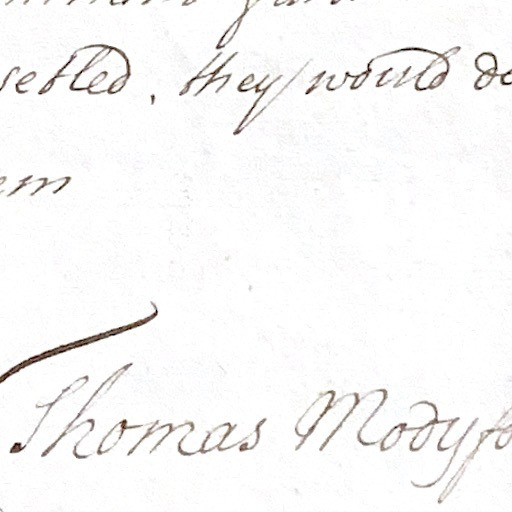 setled, they would de
em
Thomas Modyfo